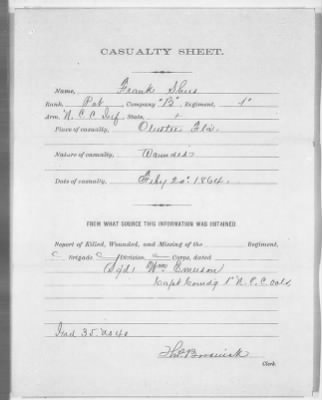 CASUALTY SHEET.
Name, Frank
Rank, Pvt, Company "B", Regiment, 1"
Arm, N.C.C Inf, State,
Place of casualty, Olustee Fla.
Nature of casualty, Wounded
Date of casualty, Feby 20" 1864.
FROM WHAT SOURCE THIS INFORMATION WAS OBTAINED
Report of Killed, Wounded, and Missing of the Regiment,
Brigade Division Corps, dated
Sgd: Wm Emerson
Capt Comdg 1" N.C.C. Vols
Clerk.